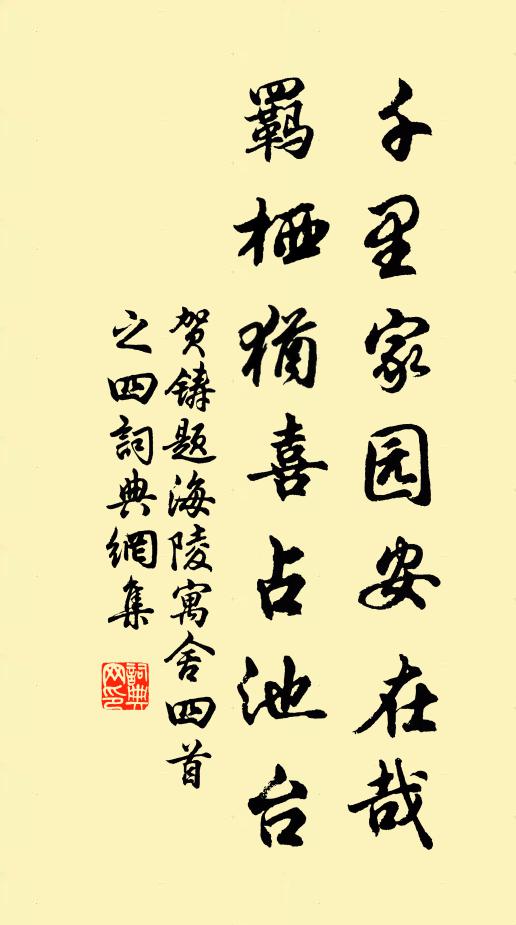 千里家园安在哉
羁栖犹喜占池台
贺铸题海陵寓舍四首
之四詞典網集
詞典網印